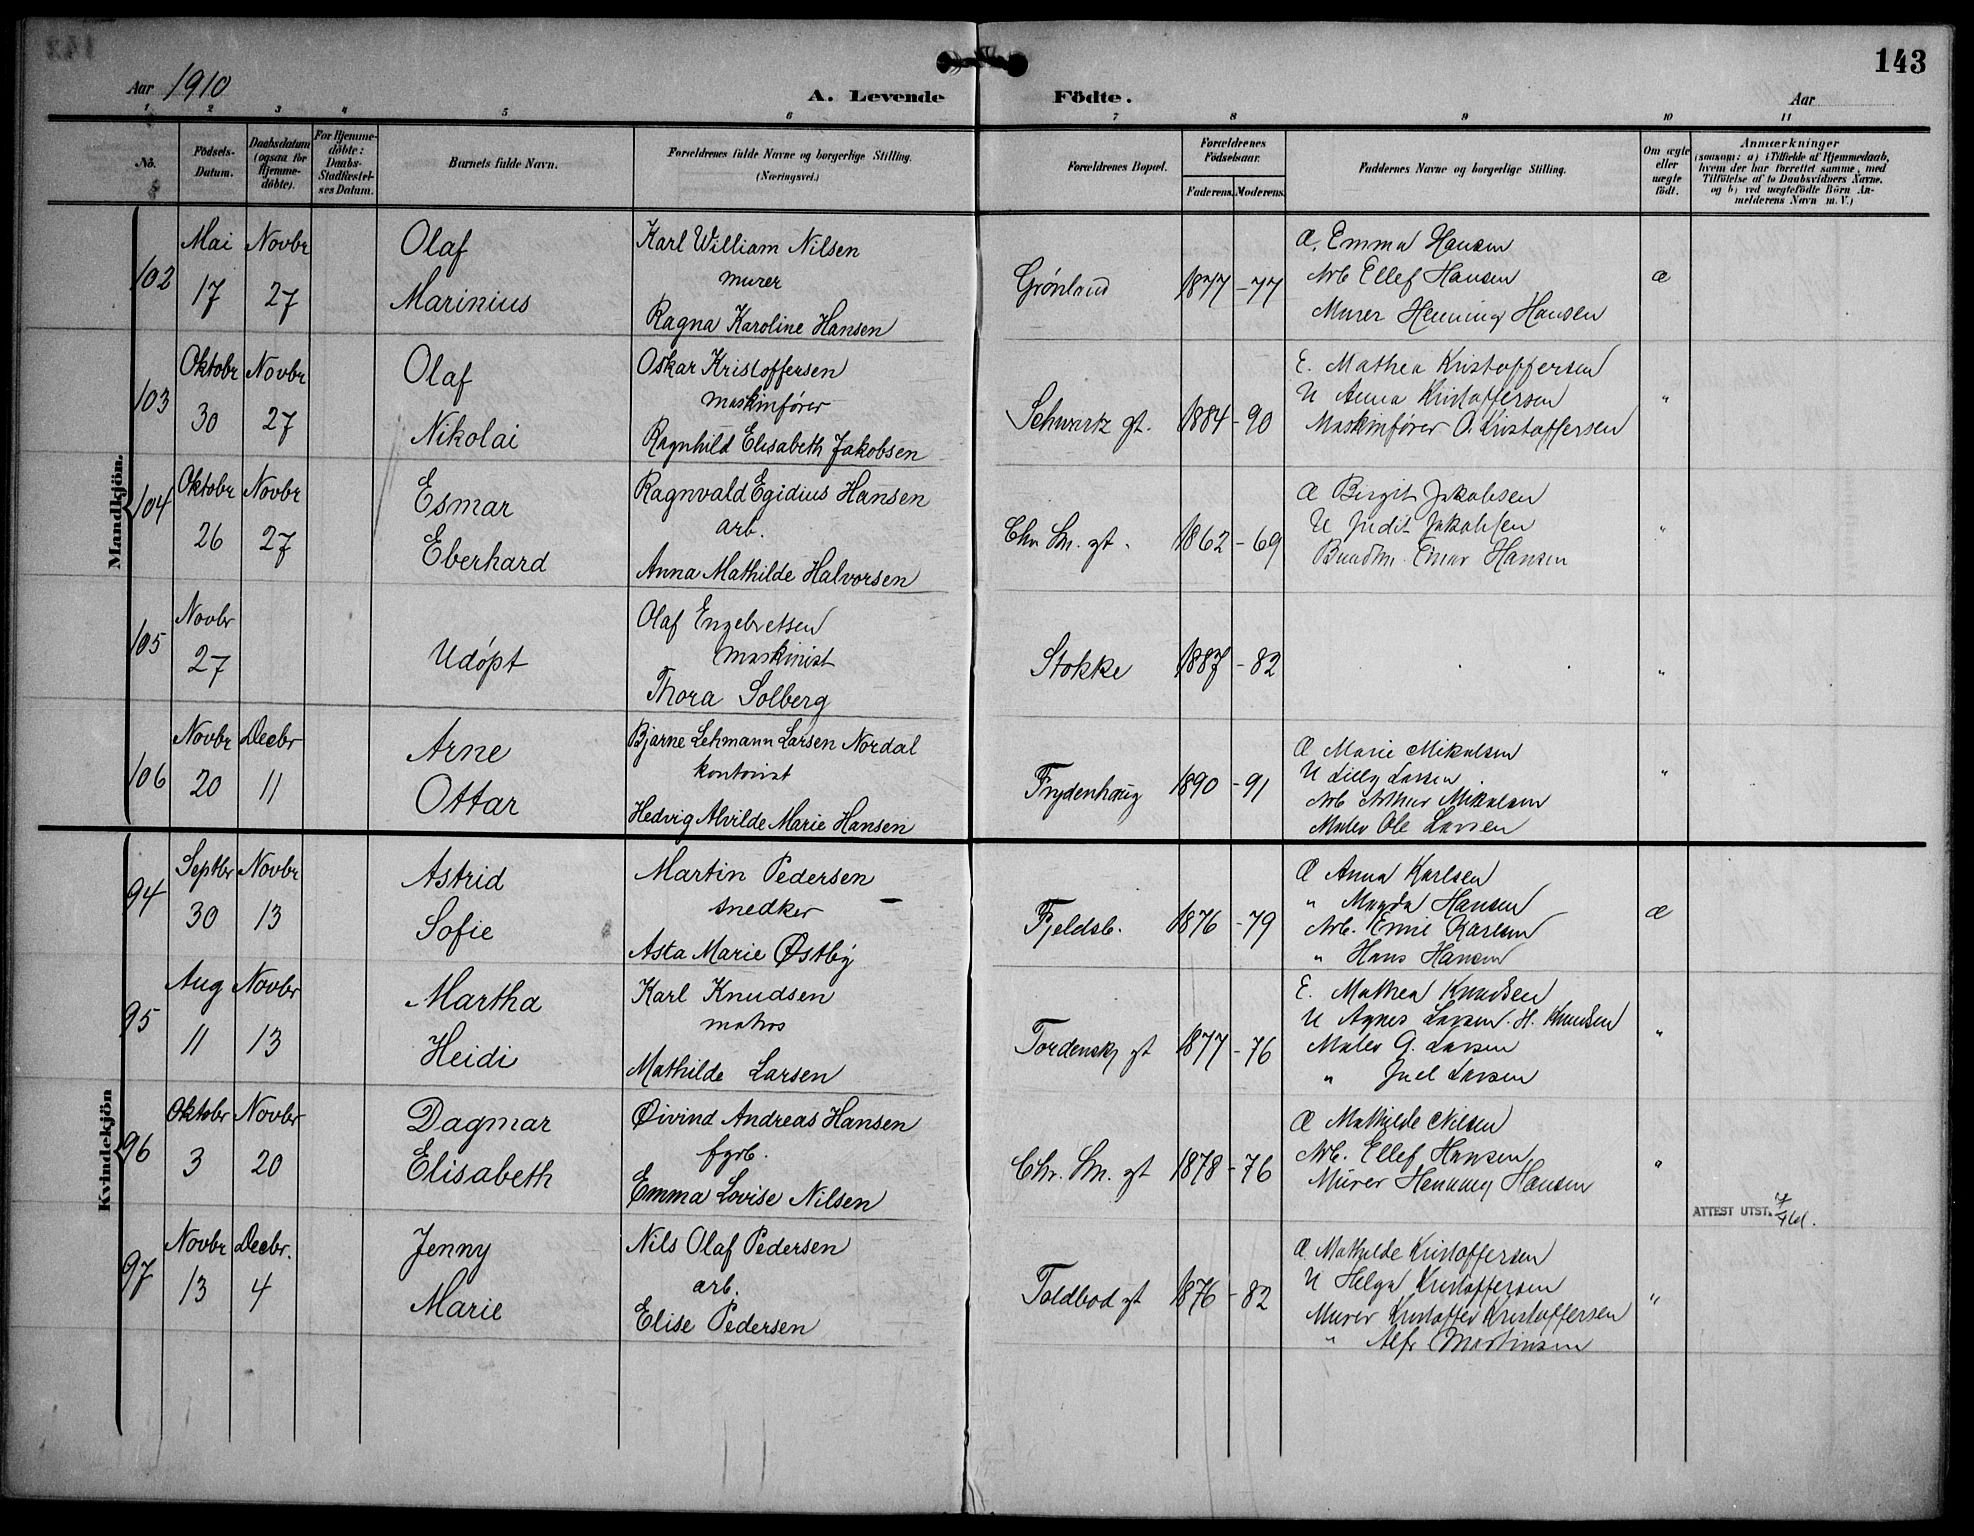 143
Aar 1910
A. Levende Födte.
Aar
1 2 3 4 5 6 7 8 9 10 11
No.
Födsels-Datum.
Daabsdatum (ogsaa for Hjemmedöbte).
For Hjemmedöbte: Daabs-Stadfæstelses Datum.
Barnets fulde Navn.
Forældrenes fulde Navne og borgerlige Stilling. (Næringsvei.)
Forældrenes Bopæl.
Forældrenes Födselsaar.
Faderens. Moderens.
Faddernes Navne og borgerlige Stilling.
Om ægte eller uægte födt.
Anmærkninger
(saasom: a) i Tilfælde af Hjemmedaab, hvem der har forrettet samme, med Tilföielse af to Daabsvidners Navne, og b) ved uægtefödte Börn Anmelderens Navn m. V.)
Mandkjön.
102
Mai 17
Novbr 27
Olaf
Marinius
Karl William Nilsen
murer
Ragna Karoline Hansen
Grönland
1877 - 77
Æ. Emma Hansen
Arb Ellef Hansen
Murer Henning Hansen
æ
103
Oktobr 30
Novbr 27
Olaf
Nikolai
Oskar Kristoffersen
maskinfører
Ragnhild Elisabeth Jakobsen
Schwartz gt.
1884 - 90
E. Mathea Kristoffersen
U Anna Kristoffersen
Maskinfører O. Kristoffersen
"
104
Oktobr 26
Novbr 27
Esmar
Eberhard
Ragnvald Egidius Hansen
arb.
Anna Mathilde Halvorsen
Chr Sm. gt.
1862 - 69
Æ Birgit Jakobsen
U Judit Jakobsen
Einar Hansen
"
105
Novbr 27
Udöpt
Olaf Engebretsen
maskinist
Thora Solberg
Stokke
1887 - 82
"
106
Novbr 20
Decbr 11
Arne
Ottar
Bjarne Lehmann Larsen Nordal
kontorist
Hedvig Alvilde Marie Hansen
Frydenhaug
1890 - 91
Æ Marie Mikalsen
U Lilly Larsen
Arb Arthur Mikalsen
Maler Ole Larsen
"
Kvindekjön
94
Septbr 30
Novbr 13
Astrid
Sofie
Martin Pedersen
snedker
Asta Marie Østby
Fjeldsb.
1876 - 79
Æ Anna Karlsen
" Magda Hansen
Arb. Emil Karlsen
" Hans Hansen
æ
95
Aug 11
Novbr 13
Martha
Heidi
Karl Knudsen
matros
Mathilde Larsen
Tordensk gt
1877 - 76
E. Mathea Knudsen
U Agnes Larsen. H. Knudsen
Maler G. Larsen
" Juel Larsen
"
96
Oktobr 3
Novbr 20
Dagmar
Elisabeth
Øivind Andreas Hansen
fgrb.
Emma Lovise Nilsen
Chr. Sm. gt
1878 - 76
Æ Mathilde Nilsen
Arb. Ellef Hansen
Murer Henning Hansen
"
ATTEST UTST.
97
Novbr 13
Decbr. 4
Jenny
Marie
Nils Olaf Pedersen
arb.
Elise Pedersen
Toldbod gt
1876 - 82
Æ. Mathilde Kristoffersen
U Helga Kristoffersen
Murer Kristoffer Kristoffersen
" Alfr Martinsen
"